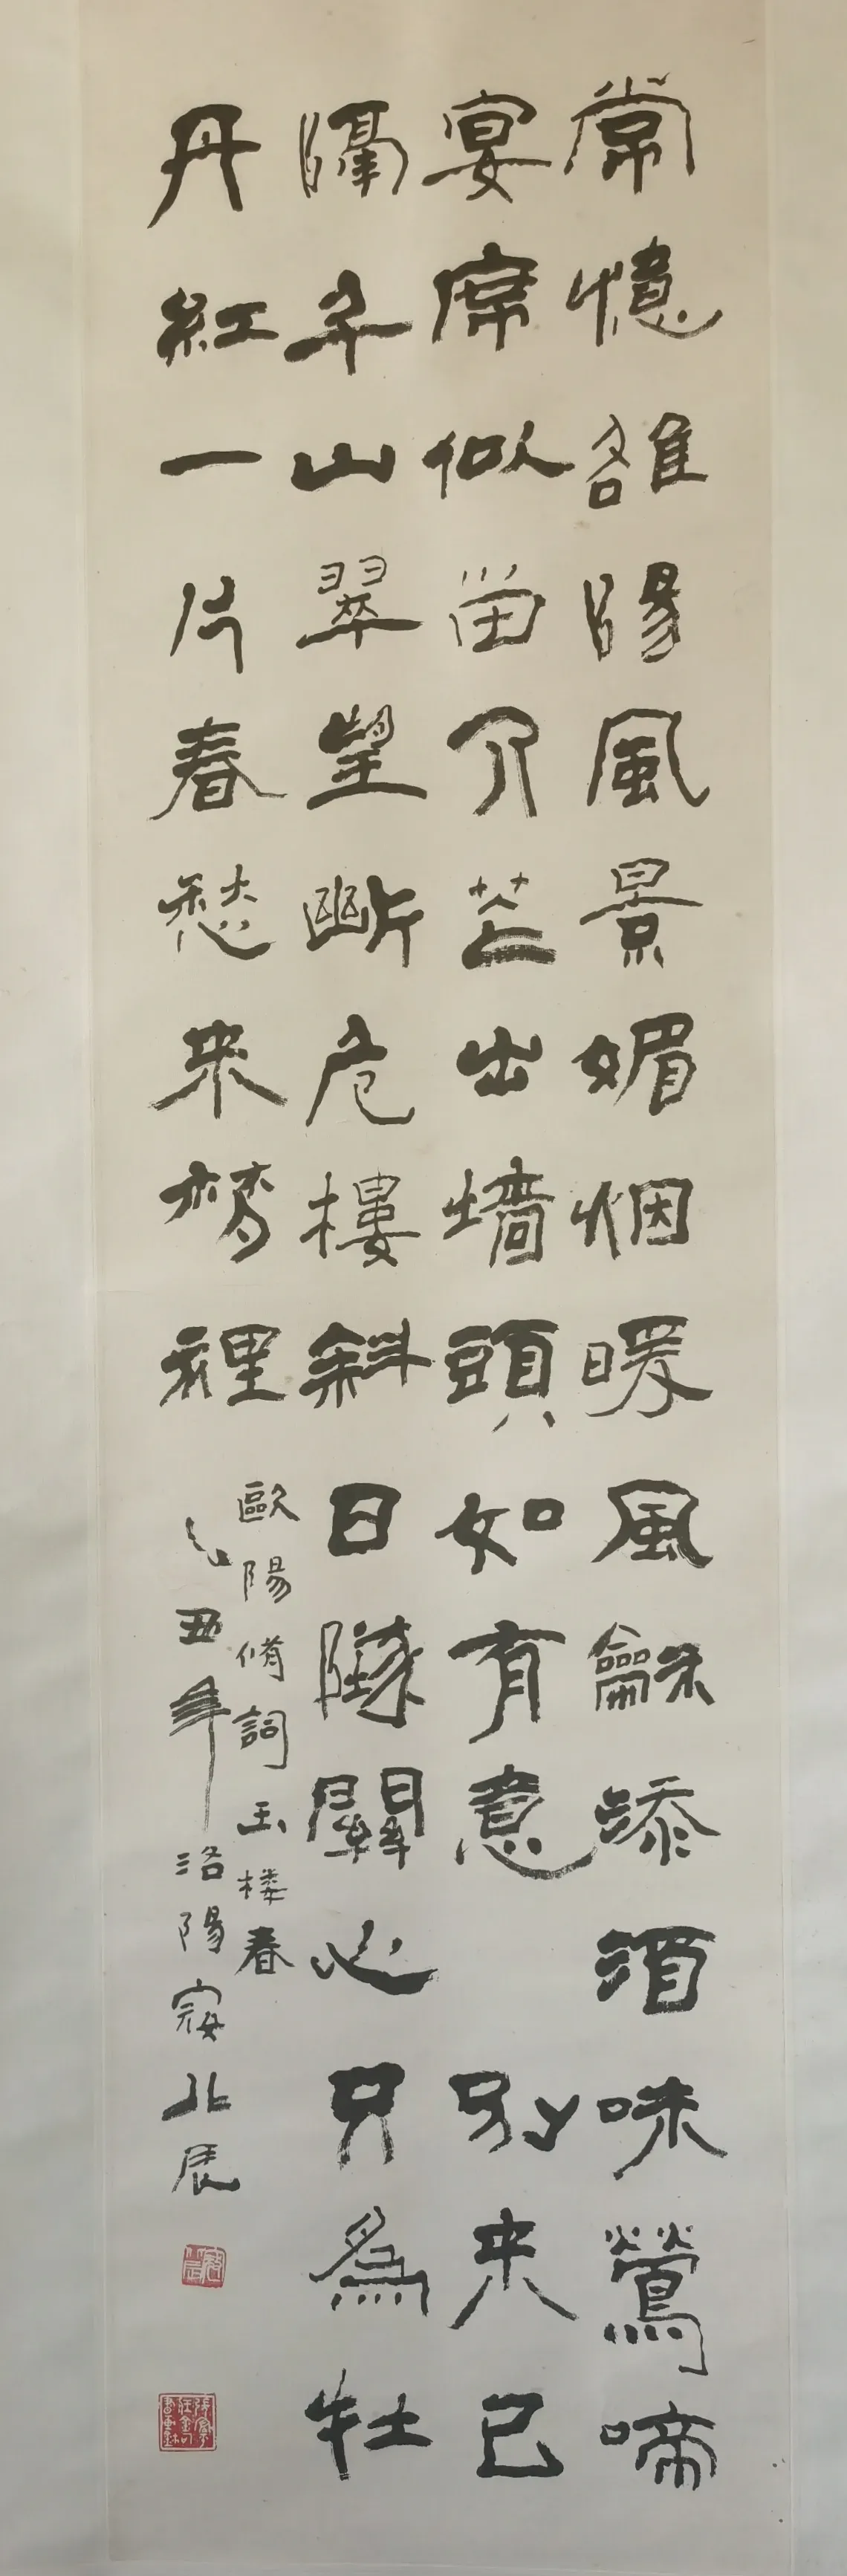 常憶雒陽風景媚烟暖風龢添酒味鶯啼
宴席似留人花出墻頭如有意別來已
隔千山翠望斷危樓斜日墜關心只爲牡
丹紅一片春愁來夢裡
歐陽脩詞玉楼春
乙丑年洛陽寇北辰